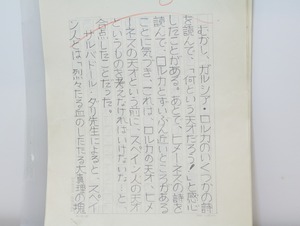 むかし、ガルシア・ロルカのいくつかの詩
を読んで、「何という天才だろう!」と感心
したことがある。あとで、ヒメーネスの詩を
読んで、ロルカとずいぶん近いところがある
ことに気づき、これは、ロルカの天才、ヒメ
ーネスの天才という前に、スペイン人の天才
というものを考えなければいけないな、と
合点したことだった。
サルバドール・ダリ先生によると、スペイ
ン人とは「烈々たる血のしたたる大真理の